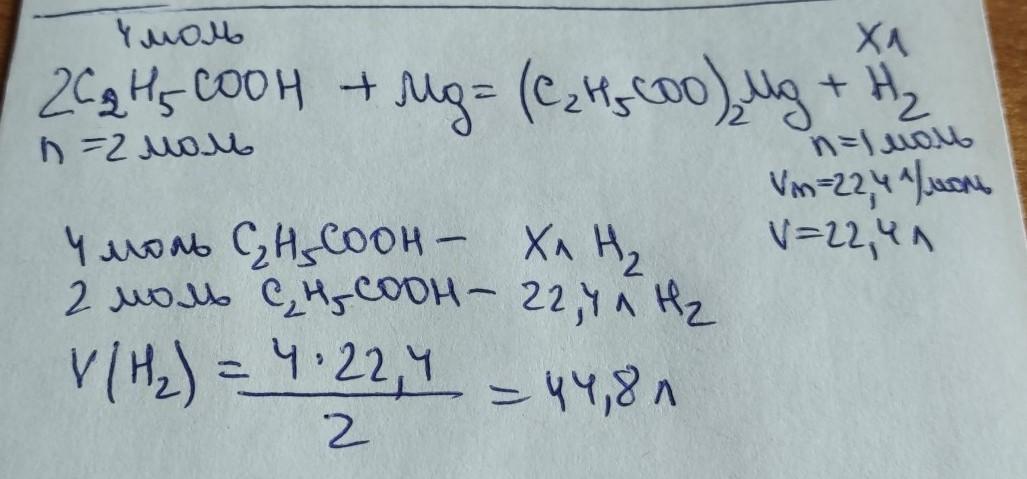 4 моль Xл
2C₂H₅COOH + Mg = (C₂H₅COO)₂Mg + H₂
n = 2 моль n = 1 моль
Vm = 22,4 л/моль
V = 22,4 л
4 моль C₂H₅COOH – Xл H₂
2 моль C₂H₅COOH – 22,4 л H₂
V(H₂) = 4 · 22,4 / 2 = 44,8 л